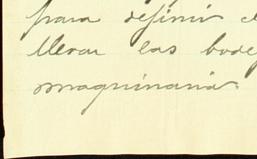 para definir el
llevar las bode
maquinaria.